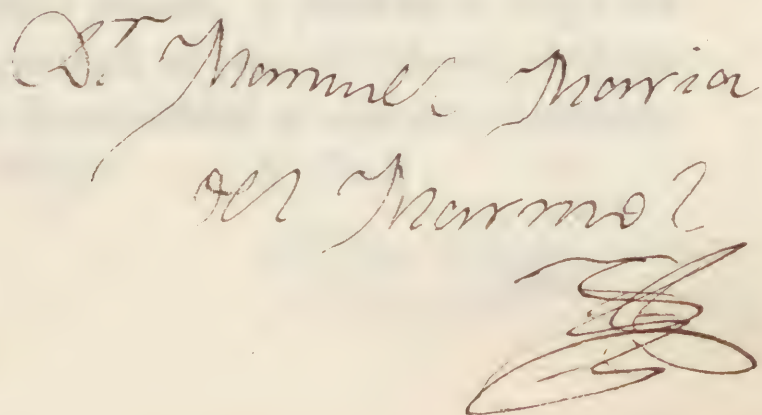 Dr Manuel Maria
del Marmol